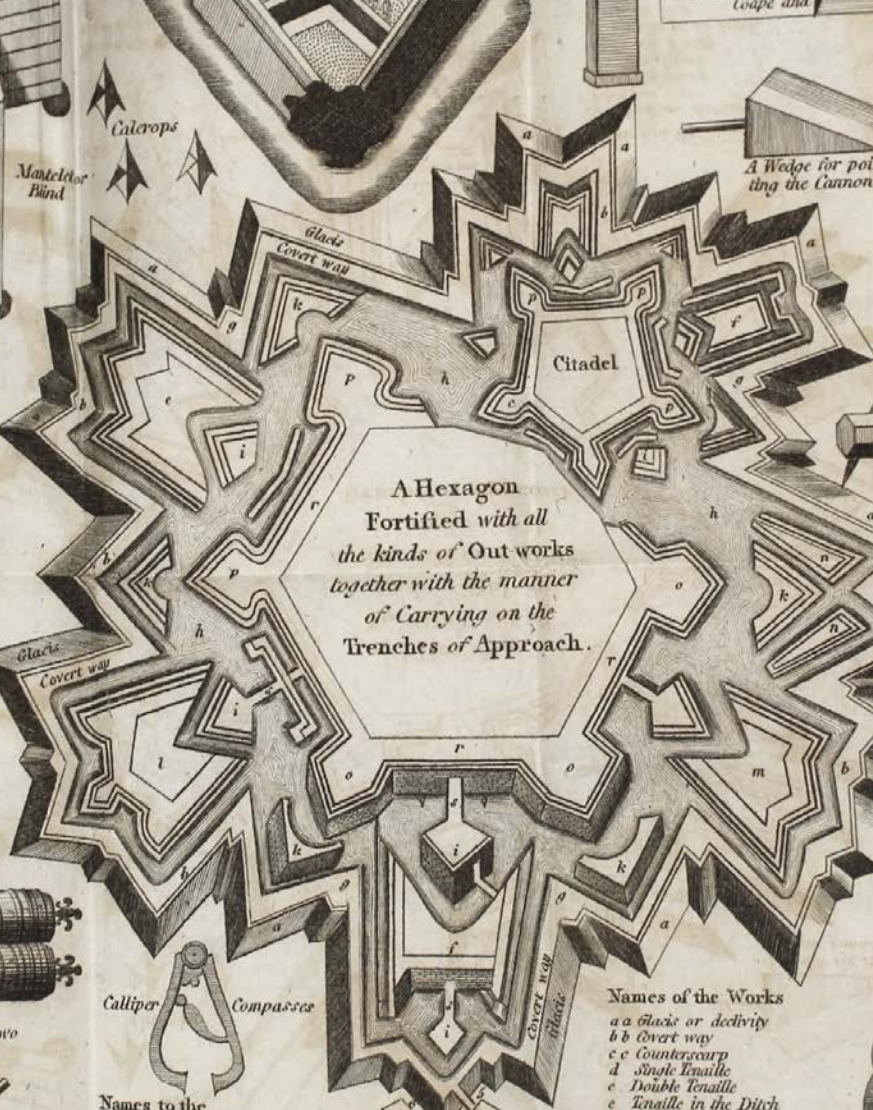 Coape and
Calcrops
Mantelet or
Blind
A Wedge for poi
ting the Cannon
Glacis
Covert way
Citadel
A Hexagon
Fortified with all
the kinds of Out works
together with the manner
of Carrying on the
Trenches of Approach.
Glacis
Covert way
a
a
b
a
a
g
k
p
p
f
h
c
p
g
b
e
i
i
a
r
h
b
k
p
n
o
k
n
h
r
i
s
l
r
o
o
m
b
q
s
q
i
b
k
k
g
g
a
f
a
s
i
Covert way
Glacis
Calliper
Compasses
wo
Names to the
Names of the Works
a a Glacis or declivity
b b Covert way
c c Counterscarp
d Single Tenaille
e Double Tenaille
e Tenaille in the Ditch